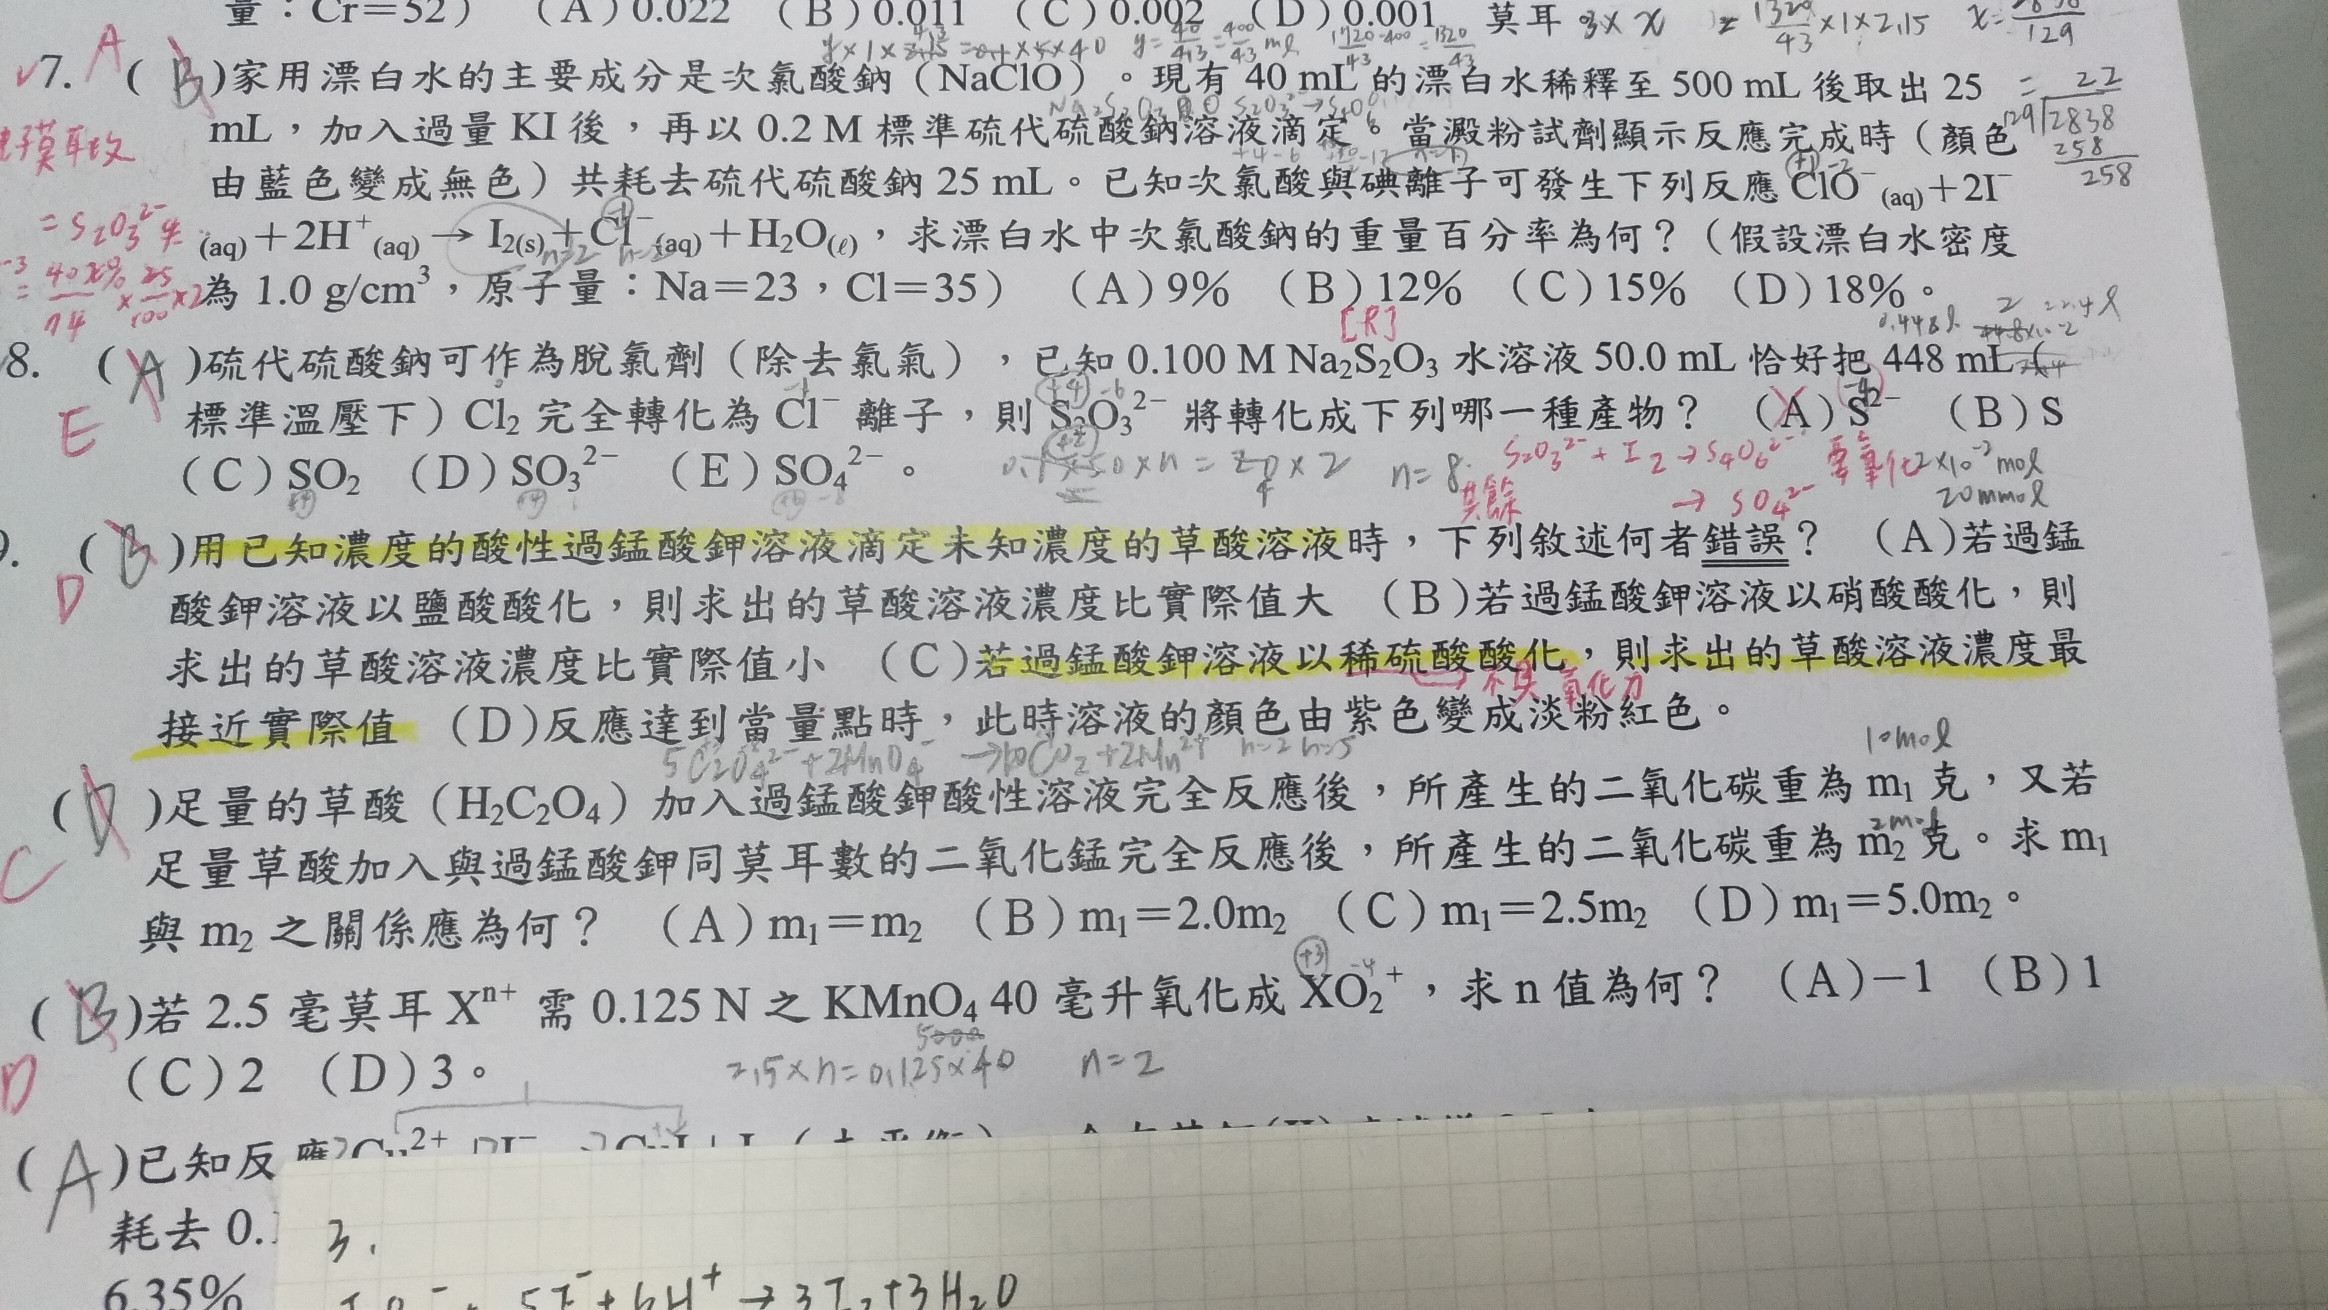 量：Cr＝52） （A）0.022 （B）0.011 （C）0.002 （D）0.001 莫耳
7. A ( B )家用漂白水的主要成分是次氯酸鈉（NaClO）。現有 40 mL 的漂白水稀釋至 500 mL 後取出 25
mL，加入過量 KI 後，再以 0.2 M 標準硫代硫酸鈉溶液滴定。當澱粉試劑顯示反應完成時（顏色
由藍色變成無色）共耗去硫代硫酸鈉 25 mL。已知次氯酸與碘離子可發生下列反應 ClO⁻(aq)＋2I⁻
(aq)＋2H⁺(aq)→I₂(s)＋Cl⁻(aq)＋H₂O(ℓ)，求漂白水中次氯酸鈉的重量百分率為何？（假設漂白水密度
為 1.0 g/cm³，原子量：Na＝23，Cl＝35） （A）9% （B）12% （C）15% （D）18%。
[R]
8. ( A )硫代硫酸鈉可作為脫氯劑（除去氯氣），已知 0.100 M Na₂S₂O₃ 水溶液 50.0 mL 恰好把 448 mL（
E 標準溫壓下）Cl₂ 完全轉化為 Cl⁻ 離子，則 S₂O₃²⁻ 將轉化成下列哪一種產物？ （A）S²⁻ （B）S
（C）SO₂ （D）SO₃²⁻ （E）SO₄²⁻。
0.1×50×n = 20×2 n=8
S₂O₃²⁻ + I₂ → S₄O₆²⁻
→ SO₄²⁻
2×10⁻² mol
20mmol
9. ( B )用已知濃度的酸性過錳酸鉀溶液滴定未知濃度的草酸溶液時，下列敘述何者錯誤？ （A）若過錳
D 酸鉀溶液以鹽酸酸化，則求出的草酸溶液濃度比實際值大 （B）若過錳酸鉀溶液以硝酸酸化，則
求出的草酸溶液濃度比實際值小 （C）若過錳酸鉀溶液以稀硫酸酸化，則求出的草酸溶液濃度最
不具氧化力
接近實際值 （D）反應達到當量點時，此時溶液的顏色由紫色變成淡粉紅色。
5C₂O₄²⁻+2MnO₄⁻ →10CO₂+2Mn²⁺ n=2 n=5
10mol
( D )足量的草酸（H₂C₂O₄）加入過錳酸鉀酸性溶液完全反應後，所產生的二氧化碳重為 m₁ 克，又若
2mol
C 足量草酸加入與過錳酸鉀同莫耳數的二氧化錳完全反應後，所產生的二氧化碳重為 m₂ 克。求 m₁
與 m₂ 之關係應為何？ （A）m₁＝m₂ （B）m₁＝2.0m₂ （C）m₁＝2.5m₂ （D）m₁＝5.0m₂。
( B )若 2.5 毫莫耳 Xⁿ⁺ 需 0.125 N 之 KMnO₄ 40 毫升氧化成 XO₂⁺，求 n 值為何？ （A）－1 （B）1
D （C）2 （D）3。
2.5×n=0.125×40 n=2
( A )已知反應
耗去 0.
6.35%
3.
+ 6H⁺ → 3I₂+3H₂O